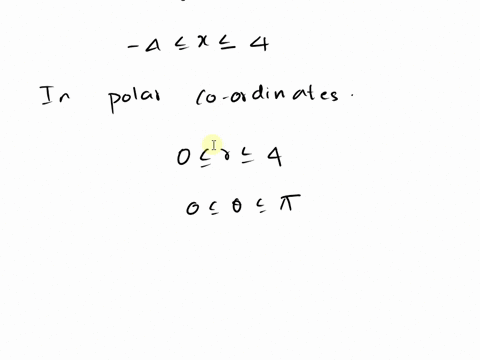 -4 ≤ x ≤ 4
In polar co-ordinates.
0 ≤ r ≤ 4
0 ≤ θ ≤ π